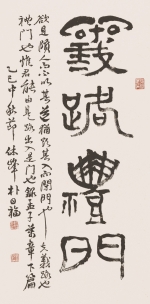 義路禮門
欲見賢人而不以其道猶欲其入而閉之門也夫義路也
禮門也惟君子能由是路出入是門也錄孟子萬章下篇
乙巳中秋節 朴日福